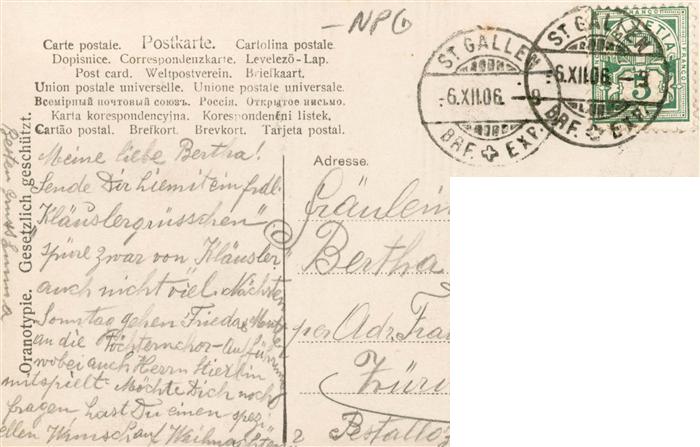 -NPG
Carte postale. Postkarte. Cartolina postale.
Dopisnice. Correspondenzkarte. Levelező-Lap.
Post card. Weltpostverein. Briefkaart.
Union postale universelle. Unione postale universale.
Всемірный почтовый союзъ. Россія. Открытое письмо.
Karta korespondencyjna. Korespondenční listek.
Cartão postal. Brefkort. Brevkort. Tarjeta postal.
ST GALLEN
-6.XII.06. -8
BRF. EXP.
ST GALLEN
-6.XII.06. -8
BRF. EXP.
FRANCO
HELVETIA
5
Oranotypie. Gesetzlich geschützt.
Adresse.
Meine liebe Bertha!
Sende Dir hiemit ein frdl.
"Kläuslergrüsschen"
spüre zwar von Kläusler
auch nicht viel. Nächsten
Sonntag gehen Frieda
an die Töchternchor-Aufführung
wobei auch Herrn
mitspielt. Möchte Dich noch
fragen hast Du einen spezi-
ellen Wunsch auf Weihnachten
Fräulein
Bertha
per Adr. Frau
Züri
2 Pestaloz